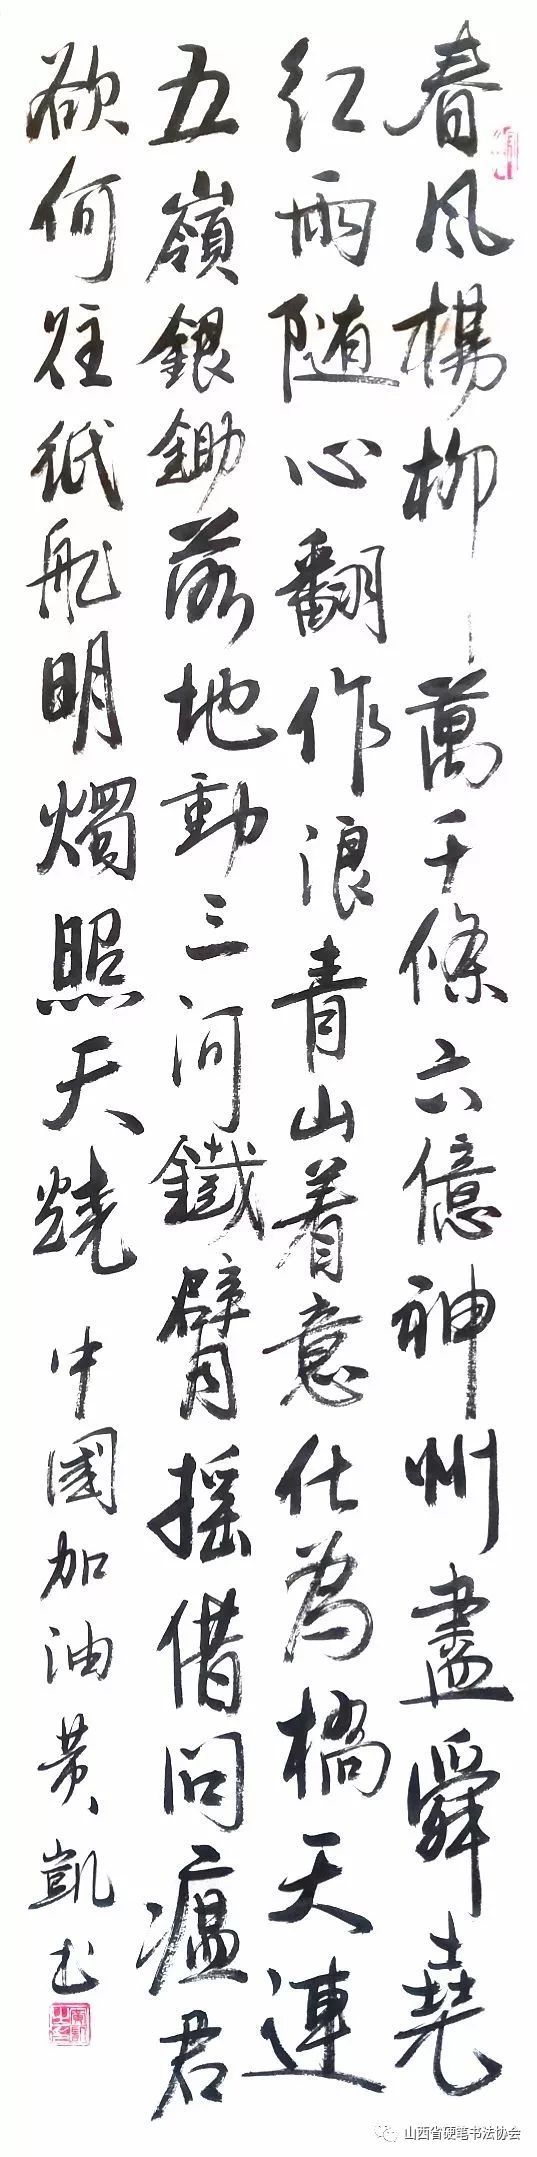 春风楊柳萬千條六億神州盡舜堯
红雨随心翻作浪青山着意化为橋天連
五嶺銀鋤落地動三河鐵臂摇借問瘟君
欲何往纸船明燭照天燒 中國加油 黄凱书
山西省硬笔书法协会